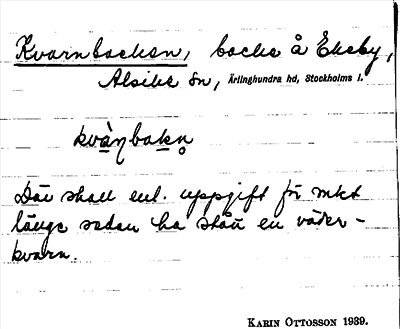 Kvarnbacken, backe å Ekeby,
Alsike sn, Ärlinghundra hd, Stockholms l.
kvànbakn̥
Där skall enl. uppgift för mkt
länge sedan ha stått en väder-
kvarn.
KARIN OTTOSSON 1939.